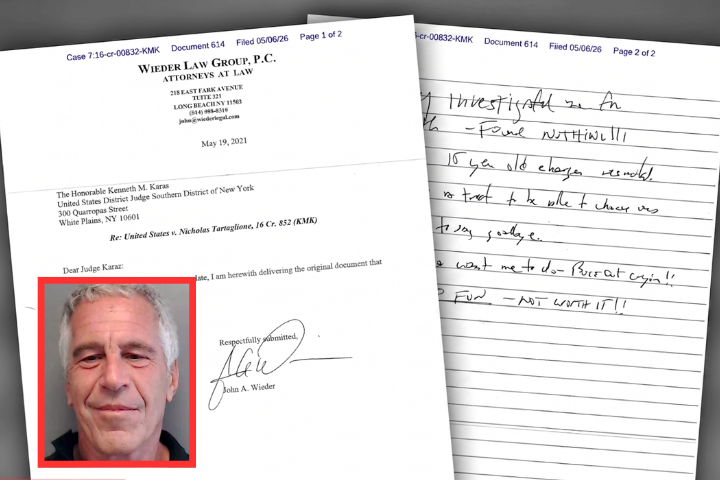 Case 7:16-cr-00832-KMK Document 614 Filed 05/06/26 Page 1 of 2
WIEDER LAW GROUP, P.C.
ATTORNEYS AT LAW
218 EAST PARK AVENUE
TUITE 321
LONG BEACH NY 11563
julm@wiederlegal.com
May 19, 2021
The Honorable Kenneth M. Karas
United States District Judge Southern District of New York
300 Quarropas Street
White Plains, NY 10601
Re: United States v. Nicholas Tartaglione, 16 Cr. 852 (KMK)
Dear Judge Karaz:
date, I am herewith delivering the original document that
Respectfully submitted,
John A. Wieder
-cr-00832-KMK Document 614 Filed 05/06/26 Page 2 of 2
investigated
- FOUND NOTHING!!!
15 year old charges
to be able to choose
to say goodbye.
want me to do -
FUN. - NOT WORTH IT!!